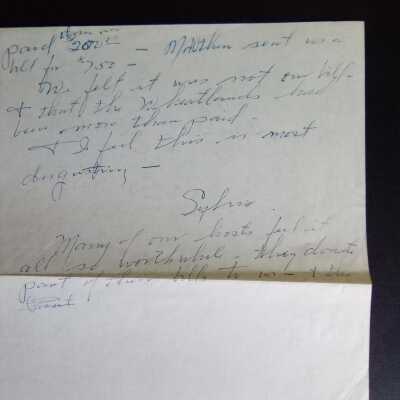 paid them on $200.00 — sent us a
bill for $750 —
We felt it was not our bill -
+ that the had
been more than paid.
+ I feel this is most
disgusting —
Sylvia.
Many of our hosts feel it
all so worthwhile - they donate
part of their bills to us - + the